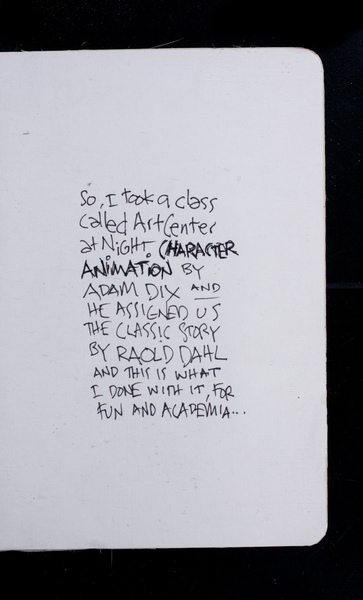 So, I took a class
called ArtCenter
at NiGHT. CHARACTER
ANiMATiON BY
ADAM DIX AND
HE ASSIGNED US
THE CLASSIC STORY
BY RAOLD DAHL
AND THIS IS WHAT
I DONE WITH IT, FOR
FUN AND ACADEMIA...